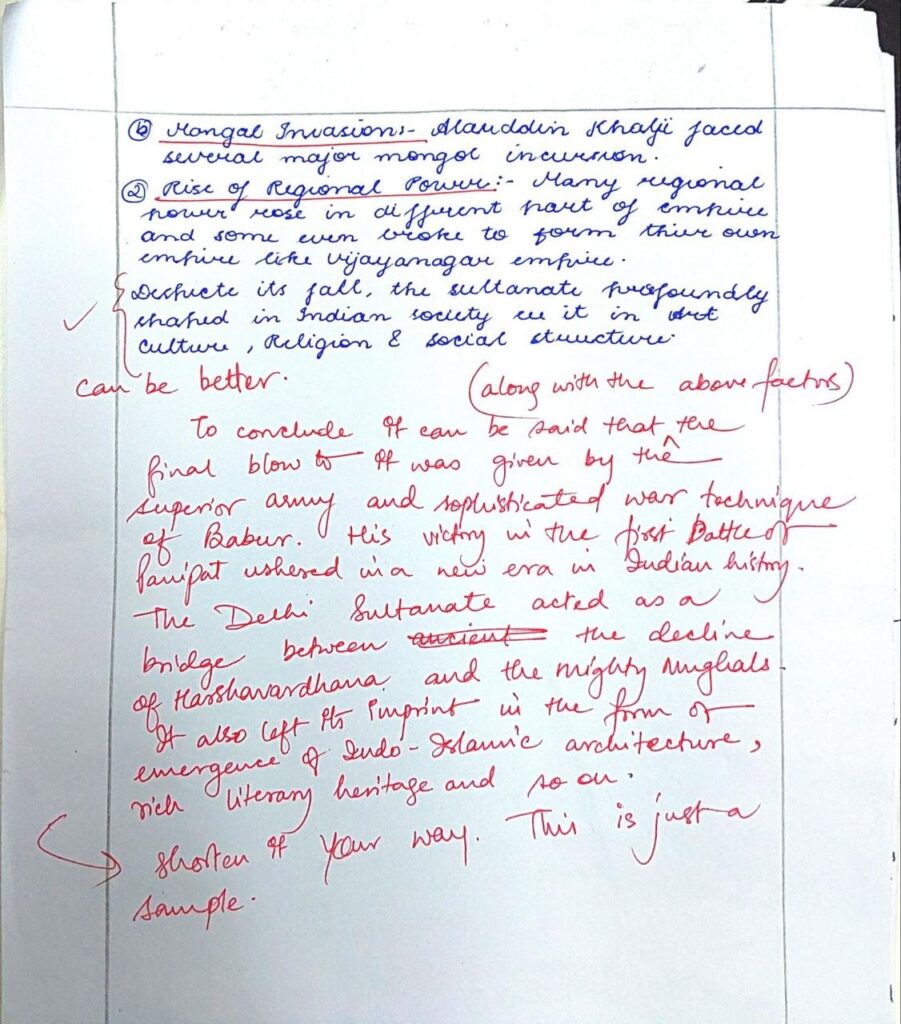 ⓑ Mongal Invasion:- Alauddin Khalji faced
several major mongol incursion.
② Rise of Regional Power:- Many regional
power rose in different part of empire
and some even broke to form thier own
empire like Vijayanagar empire.
Despicte its fall, the sultanate profoundly
shaped in Indian society in it in Art
culture, Religion & social structure.
can be better.
(along with the above factors)
To conclude it can be said that the
final blow to it was given by the
superior army and sophisticated war technique
of Babur. His victory in the first Battle of
Panipat ushered in a new era in Indian history.
The Delhi Sultanate acted as a
bridge between ancient the decline
of Harshavardhana and the mighty Mughals.
It also left its imprint in the form of
emergence of Indo-Islamic architecture,
rich literary heritage and so on.
shorten it your way. This is just a
sample.